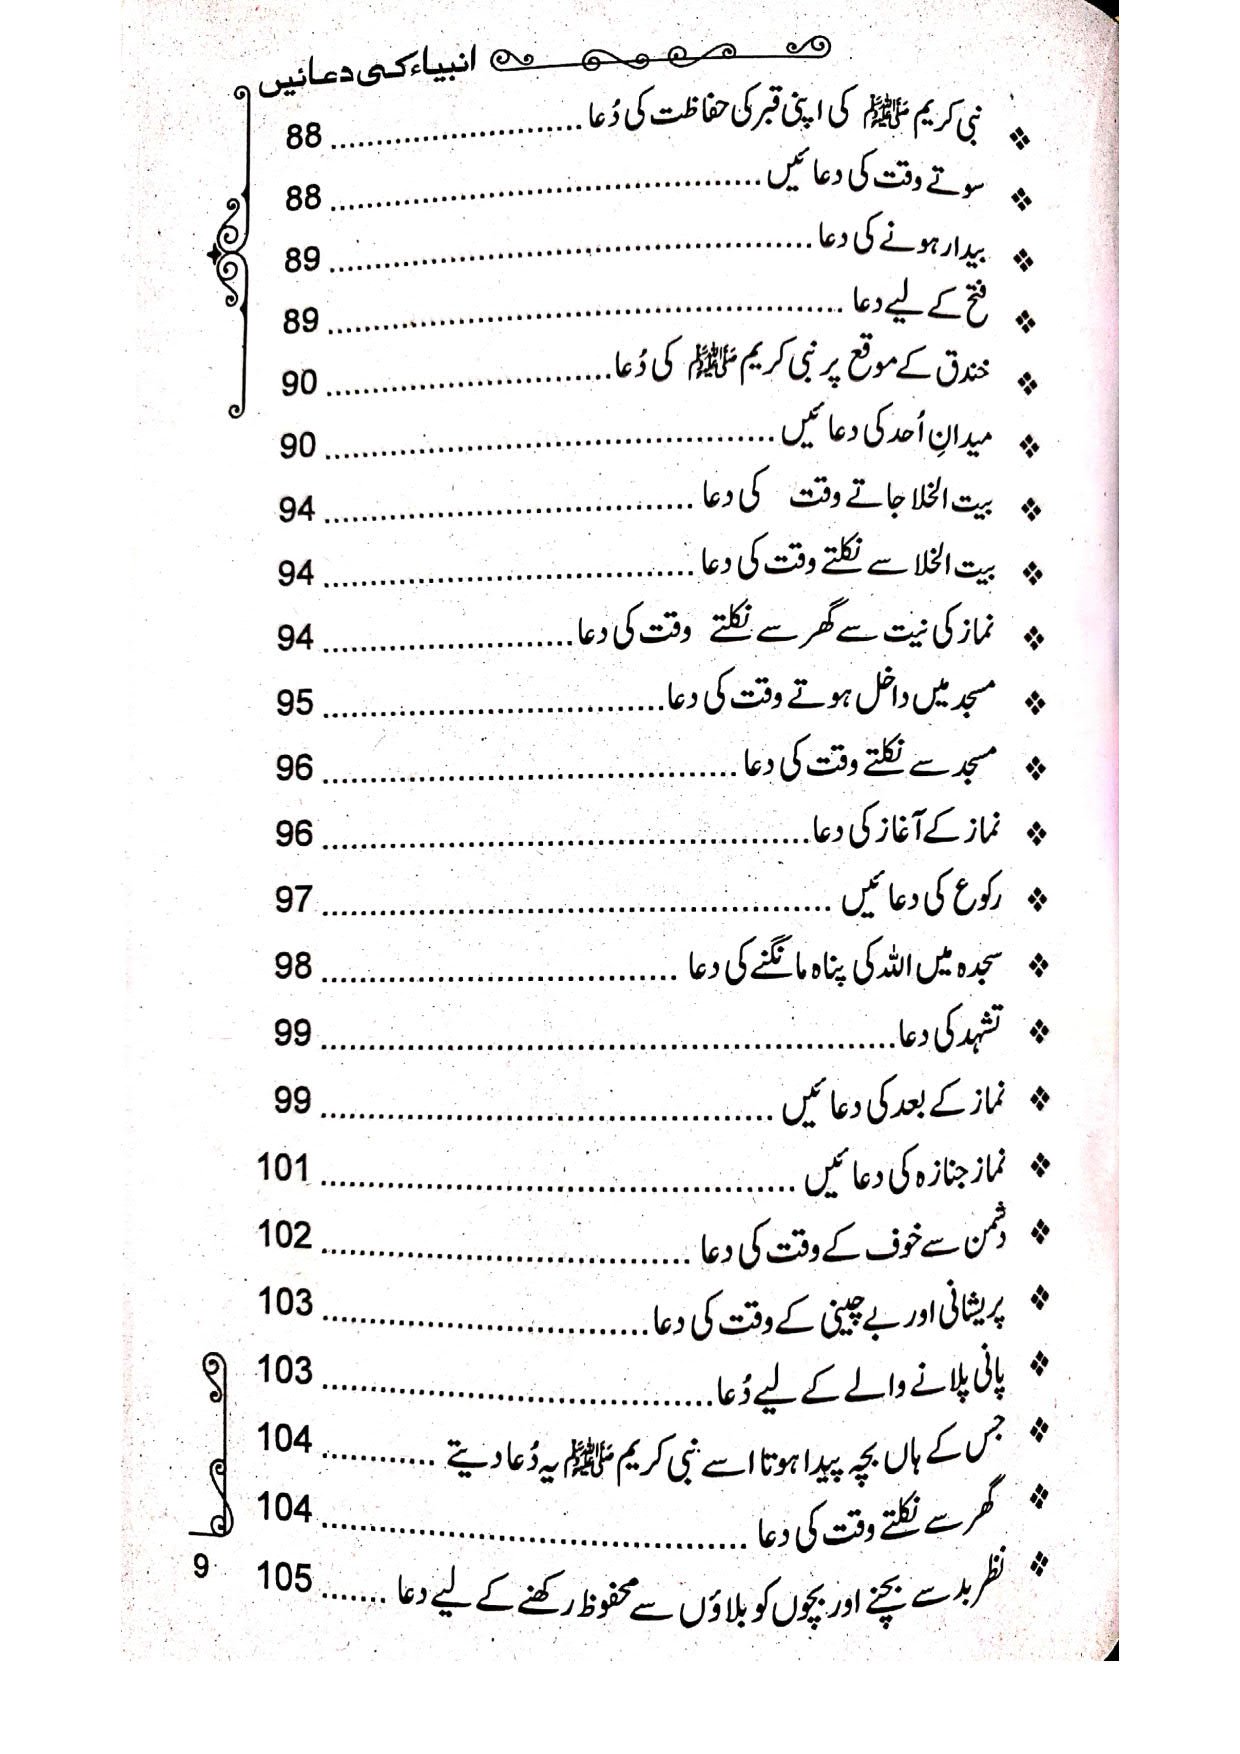 انبیاء کی دعائیں
❖ نبی کریم ﷺ کی اپنی قبر کی حفاظت کی دُعا ........ 88
❖ سوتے وقت کی دعائیں ........ 88
❖ بیدار ہونے کی دعا ........ 89
❖ فتح کے لیے دعا ........ 89
❖ خندق کے موقع پر نبی کریم ﷺ کی دُعا ........ 90
❖ میدانِ اُحد کی دعائیں ........ 90
❖ بیت الخلا جاتے وقت کی دعا ........ 94
❖ بیت الخلا سے نکلتے وقت کی دعا ........ 94
❖ نماز کی نیت سے گھر سے نکلتے وقت کی دعا ........ 94
❖ مسجد میں داخل ہوتے وقت کی دعا ........ 95
❖ مسجد سے نکلتے وقت کی دعا ........ 96
❖ نماز کے آغاز کی دعا ........ 96
❖ رکوع کی دعائیں ........ 97
❖ سجدہ میں اللہ کی پناہ مانگنے کی دعا ........ 98
❖ تشہد کی دعا ........ 99
❖ نماز کے بعد کی دعائیں ........ 99
❖ نماز جنازہ کی دعائیں ........ 101
❖ دشمن سے خوف کے وقت کی دعا ........ 102
❖ پریشانی اور بے چینی کے وقت کی دعا ........ 103
❖ پانی پلانے والے کے لیے دُعا ........ 103
❖ جس کے ہاں بچہ پیدا ہوتا اسے نبی کریم ﷺ یہ دُعا دیتے ........ 104
❖ گھر سے نکلتے وقت کی دعا ........ 104
❖ نظر بد سے بچنے اور بچوں کو بلاؤں سے محفوظ رکھنے کے لیے دعا ........ 105
9